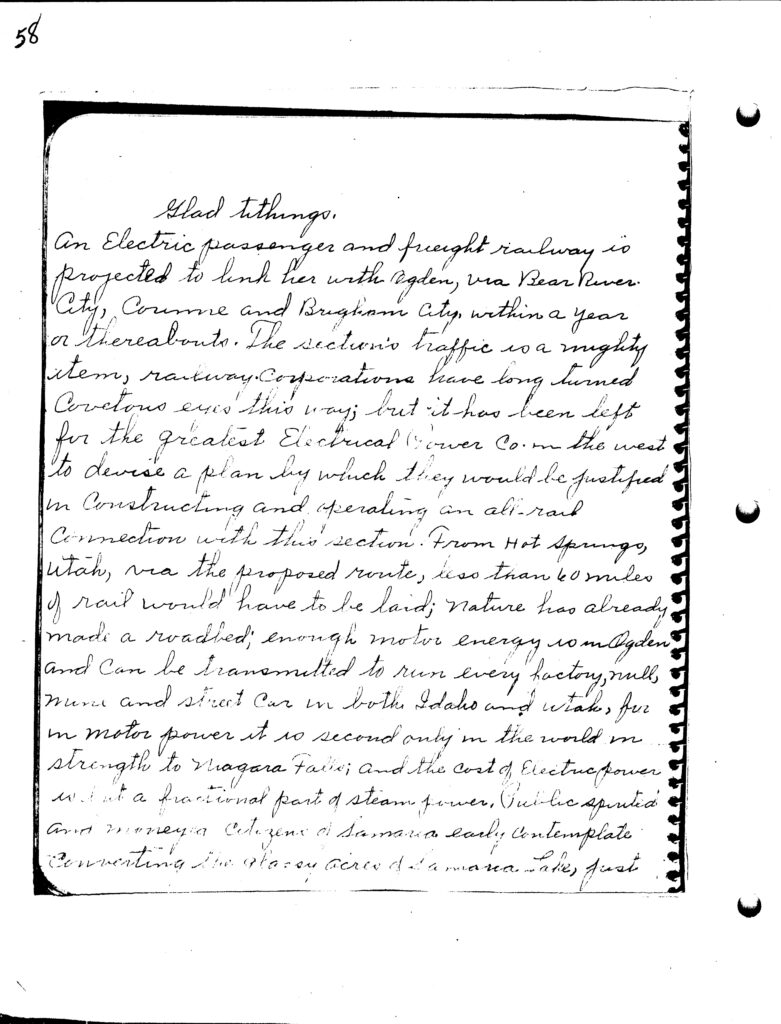 58
Glad tithings.
An Electric passenger and freight railway is
projected to link her with Ogden, via Bear River
City, Corinne and Brigham City, within a year
or thereabouts. The section's traffic is a mighty
item, railway Corporations have long turned
Covetous eyes this way; but it has been left
for the greatest Electrical Power Co. in the west
to devise a plan by which they would be justified
in Constructing and operating an all-rail
Connection with this section. From Hot Springs,
Utah, via the proposed route, less than 60 miles
of rail would have to be laid; Nature has already
made a roadbed; enough motor energy is in Ogden
and Can be transmitted to run every factory, mill,
mine and street Car in both Idaho and Utah, for
in motor power it is second only in the world in
strength to Niagara Falls; and the cost of Electric power
is but a fractional part of steam power. Public spirited
and moneyed Citizens of Samaria early Contemplate
Converting the glassy acres of Samaria Lake, just